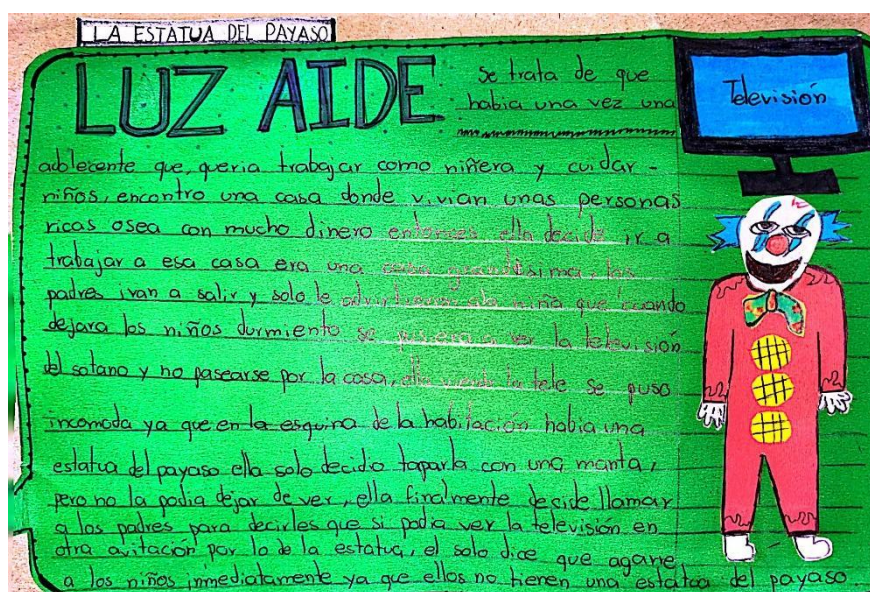 LA ESTATUA DEL PAYASO
LUZ AIDE
se trata de que
habia una vez una
Televisión
adolecente que, queria trabajar como niñera y cuidar -
niños, encontro una casa donde vivian unas personas
ricas osea con mucho dinero entonces ella decide ir a
trabajar a esa casa era una casa grandisima, los
padres ivan a salir y solo le advirtieron ala niña que cuando
dejara los niños durmiento se pusiera a ver la television
del sotano y no pasearse por la casa, ella viendo la tele se puso
incomoda ya que en la esquina de la habitación habia una
estatua del payaso ella solo decidio taparla con una manta,
pero no la podia dejar de ver, ella finalmente decide llamar
a los padres para decirles que si podia ver la televisión en
otra avitación por lo de la estatua, el solo dice que agarre
a los niños inmediatamente ya que ellos no tienen una estatua del payaso